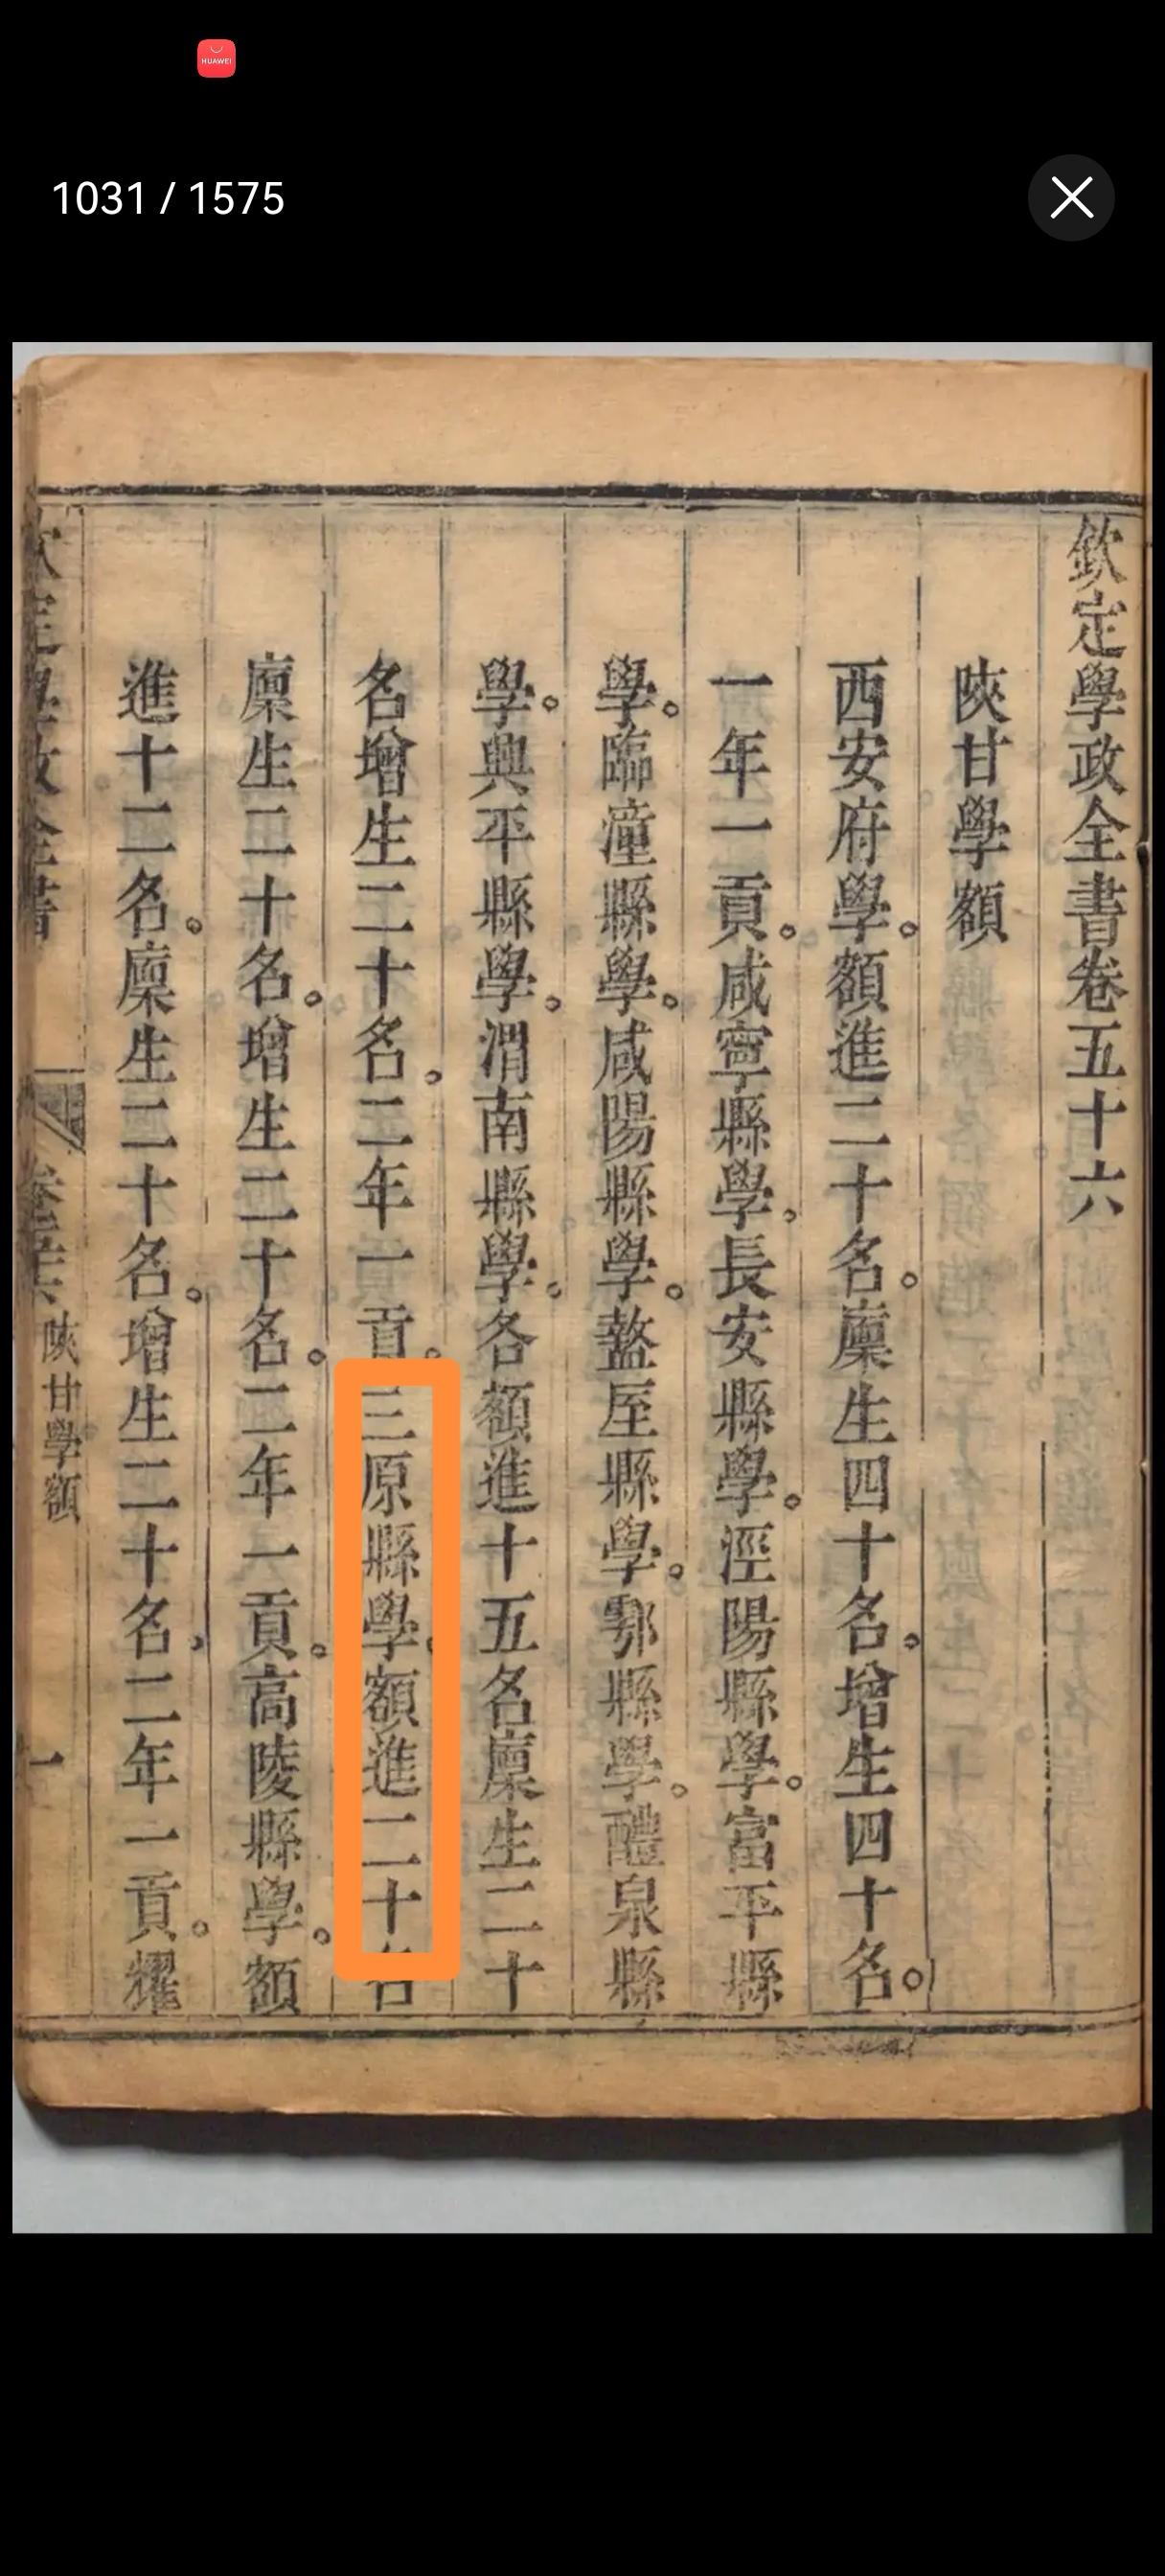 HUAWEI
1031 / 1575
欽定學政全書卷五十六
陝甘學額
西安府學。額進二十名。廩生四十名。增生四十名。
一年一貢。咸寧縣學。長安縣學。涇陽縣學。富平縣
學。臨潼縣學。咸陽縣學。盩厔縣學。鄠縣學。醴泉縣
學。興平縣學。渭南縣學。各額進十五名廩生二十
名增生二十名。二年一貢。三原縣學。額進二十名
廩生二十名。增生二十名。二年一貢。高陵縣學。額
進十二名。廩生二十名。增生二十名。二年一貢。耀
陝甘學額
一